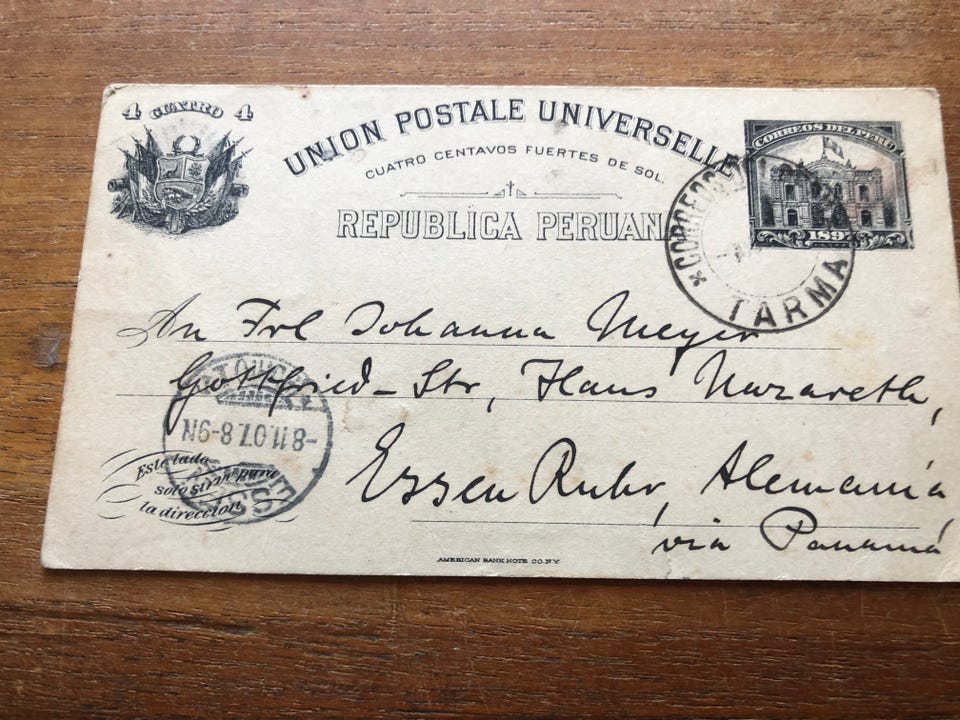 4 CUATRO 4
UNION POSTALE UNIVERSELLE
CUATRO CENTAVOS FUERTES DE SOL.
REPUBLICA PERUAN
CORREOS DEL PERU
189
CORREOS
TARMA
An Frl Johanna Meyer
Gottfried-Str, Haus Nazareth,
Essen Ruhr, Alemania
via Panamá
-8.11.07.8-9N
Este lado
solo sirve para
la direccion
AMERICAN BANK NOTE CO. N.Y.